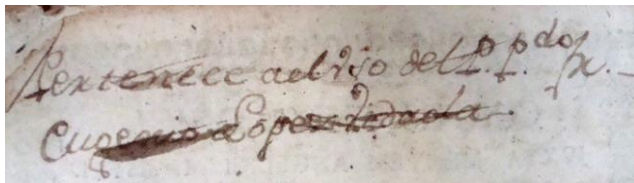 Pertenece al vso del P. P.do fr.
Eugenio Lopez